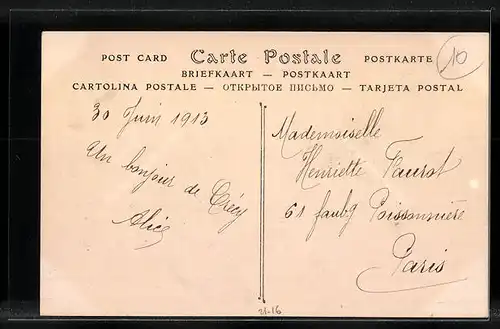 POST CARD Carte Postale POSTKARTE
BRIEFKAART — POSTKAART
CARTOLINA POSTALE — ОТКРЫТОЕ ПИСЬМО — TARJETA POSTAL
10
30 Juin 1913
Un bonjour de Crécy
Alice
Mademoiselle
Henriette Faurot
61 faubg Poissonnière
Paris
21-16